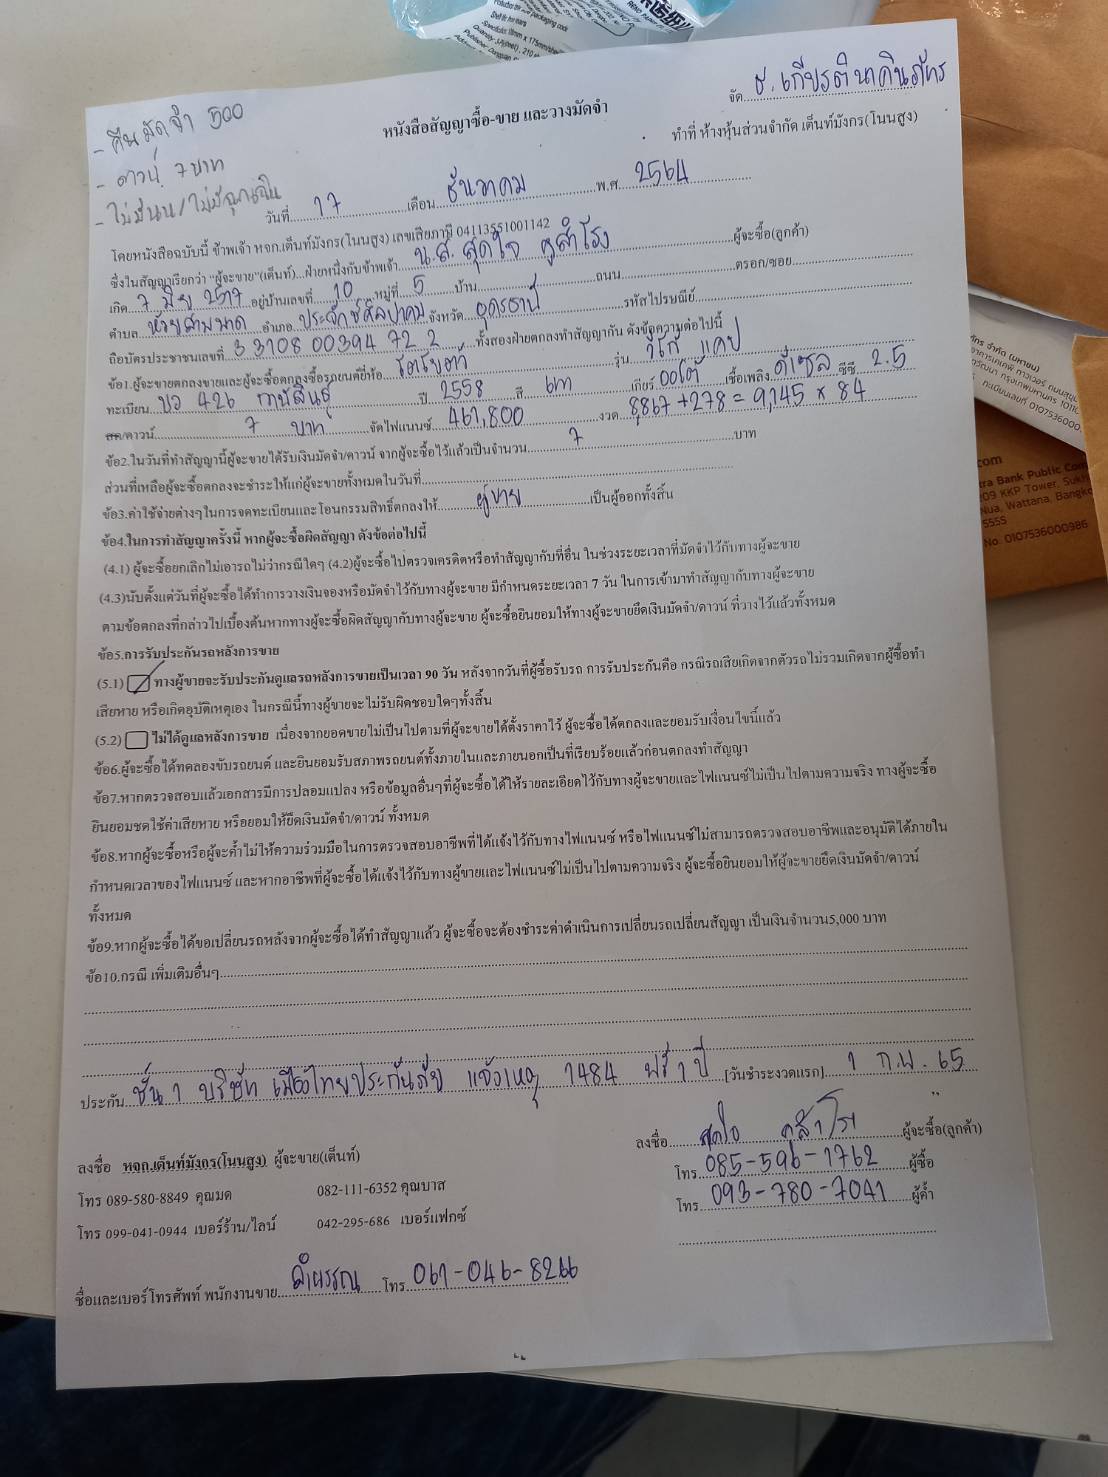 - คืนมัดจำ 500
- ดาวน์ 7 บาท
- ไม่มีนน/ไม่มีฉุกเฉิน
จัด ธ.เกียรตินาคินภัทร
หนังสือสัญญาซื้อ-ขาย และวางมัดจำ
ทำที่ ห้างหุ้นส่วนจำกัด เต็นท์มังกร(โนนสูง)
วันที่ 17 เดือน ธันวาคม พ.ศ. 2564
โดยหนังสือฉบับนี้ ข้าพเจ้า หจก.เต็นท์มังกร(โนนสูง) เลขเสียภาษี 04113551001142
ซึ่งในสัญญาเรียกว่า "ผู้จะขาย"(เต็นท์)...ฝ่ายหนึ่งกับข้าพเจ้า น.ส. สุดใจ ผู้จะซื้อ(ลูกค้า)
เกิด 7 มิย 2517 อยู่บ้านเลขที่ 10 หมู่ที่ 5 บ้าน ถนน ตรอก/ซอย
ตำบล ห้วยสามพาด อำเภอ ประจักษ์ศิลปาคม จังหวัด อุดรธานี รหัสไปรษณีย์
ถือบัตรประชาชนเลขที่ 3 3108 00394 72 2 ทั้งสองฝ่ายตกลงทำสัญญากัน ดังข้อความต่อไปนี้
ข้อ1.ผู้จะขายตกลงขายและผู้จะซื้อตกลงซื้อรถยนต์ยี่ห้อ โตโยต้า รุ่น วีโก้ แคป
ทะเบียน บว 426 กาฬสินธุ์ ปี 2558 สี เทา เกียร์ ออโต้ เชื้อเพลิง ดีเซล ซีซี 2.5
สด/ดาวน์ 7 บาท จัดไฟแนนซ์ 461,800 งวด 8867 + 278 = 9,145 x 84
ข้อ2.ในวันที่ทำสัญญานี้ผู้จะขายได้รับเงินมัดจำ/ดาวน์ จากผู้จะซื้อไว้แล้วเป็นจำนวน 7 บาท
ส่วนที่เหลือผู้จะซื้อตกลงจะชำระให้แก่ผู้จะขายทั้งหมดในวันที่
ข้อ3.ค่าใช้จ่ายต่างๆในการจดทะเบียนและโอนกรรมสิทธิ์ตกลงให้ ผู้ขาย เป็นผู้ออกทั้งสิ้น
ข้อ4.ในการทำสัญญาครั้งนี้ หากผู้จะซื้อผิดสัญญา ดังข้อต่อไปนี้
(4.1) ผู้จะซื้อยกเลิกไม่เอารถไม่ว่ากรณีใดๆ (4.2)ผู้จะซื้อไปตรวจเครดิตหรือทำสัญญากับที่อื่น ในช่วงระยะเวลาที่มัดจำไว้กับทางผู้จะขาย
(4.3)นับตั้งแต่วันที่ผู้จะซื้อได้ทำการวางเงินจองหรือมัดจำไว้กับทางผู้จะขาย มีกำหนดระยะเวลา 7 วัน ในการเข้ามาทำสัญญากับทางผู้จะขาย
ตามข้อตกลงที่กล่าวไปเบื้องต้นหากทางผู้จะซื้อผิดสัญญากับทางผู้จะขาย ผู้จะซื้อยินยอมให้ทางผู้จะขายยึดเงินมัดจำ/ดาวน์ ที่วางไว้แล้วทั้งหมด
ข้อ5.การรับประกันรถหลังการขาย
(5.1) ทางผู้ขายจะรับประกันดูแลรถหลังการขายเป็นเวลา 90 วัน หลังจากวันที่ผู้ซื้อรับรถ การรับประกันคือ กรณีรถเสียเกิดจากตัวรถไม่รวมเกิดจากผู้ซื้อทำ
เสียหาย หรือเกิดอุบัติเหตุเอง ในกรณีนี้ทางผู้ขายจะไม่รับผิดชอบใดๆทั้งสิ้น
(5.2) ไม่ได้ดูแลหลังการขาย เนื่องจากยอดขายไม่เป็นไปตามที่ผู้จะขายได้ตั้งราคาไว้ ผู้จะซื้อได้ตกลงและยอมรับเงื่อนไขนี้แล้ว
ข้อ6.ผู้จะซื้อได้ทดลองขับรถยนต์ และยินยอมรับสภาพรถยนต์ทั้งภายในและภายนอกเป็นที่เรียบร้อยแล้วก่อนตกลงทำสัญญา
ข้อ7.หากตรวจสอบแล้วเอกสารมีการปลอมแปลง หรือข้อมูลอื่นๆที่ผู้จะซื้อได้ให้รายละเอียดไว้กับทางผู้จะขายและไฟแนนซ์ไม่เป็นไปตามความจริง ทางผู้จะซื้อ
ยินยอมชดใช้ค่าเสียหาย หรือยอมให้ยึดเงินมัดจำ/ดาวน์ ทั้งหมด
ข้อ8.หากผู้จะซื้อหรือผู้จะค้ำไม่ให้ความร่วมมือในการตรวจสอบอาชีพที่ได้แจ้งไว้กับทางไฟแนนซ์ หรือไฟแนนซ์ไม่สามารถตรวจสอบอาชีพและอนุมัติได้ภายใน
กำหนดเวลาของไฟแนนซ์ และหากอาชีพที่ผู้จะซื้อได้แจ้งไว้กับทางผู้ขายและไฟแนนซ์ไม่เป็นไปตามความจริง ผู้จะซื้อยินยอมให้ผู้จะขายยึดเงินมัดจำ/ดาวน์
ทั้งหมด
ข้อ9.หากผู้จะซื้อได้ขอเปลี่ยนรถหลังจากผู้จะซื้อได้ทำสัญญาแล้ว ผู้จะซื้อจะต้องชำระค่าดำเนินการเปลี่ยนรถเปลี่ยนสัญญา เป็นเงินจำนวน5,000 บาท
ข้อ10.กรณี เพิ่มเติมอื่นๆ
ประกัน ชั้น 1 บริษัท เมืองไทยประกันภัย แจ้งเหตุ 1484 ฟรี 1 ปี (วันชำระงวดแรก) 1 ก.พ. 65
ลงชื่อ สุดใจ ผู้จะซื้อ(ลูกค้า)
ลงชื่อ หจก.เต็นท์มังกร(โนนสูง) ผู้จะขาย(เต็นท์)
โทร 085-596-1762 ผู้ซื้อ
โทร 089-580-8849 คุณมด 082-111-6352 คุณบาส
โทร 093-780-7041 ผู้ค้ำ
โทร 099-041-0944 เบอร์ร้าน/ไลน์ 042-295-686 เบอร์แฟกซ์
ชื่อและเบอร์โทรศัพท์ พนักงานขาย อำพรรณ โทร 061-046-8266
No. 0107536000986